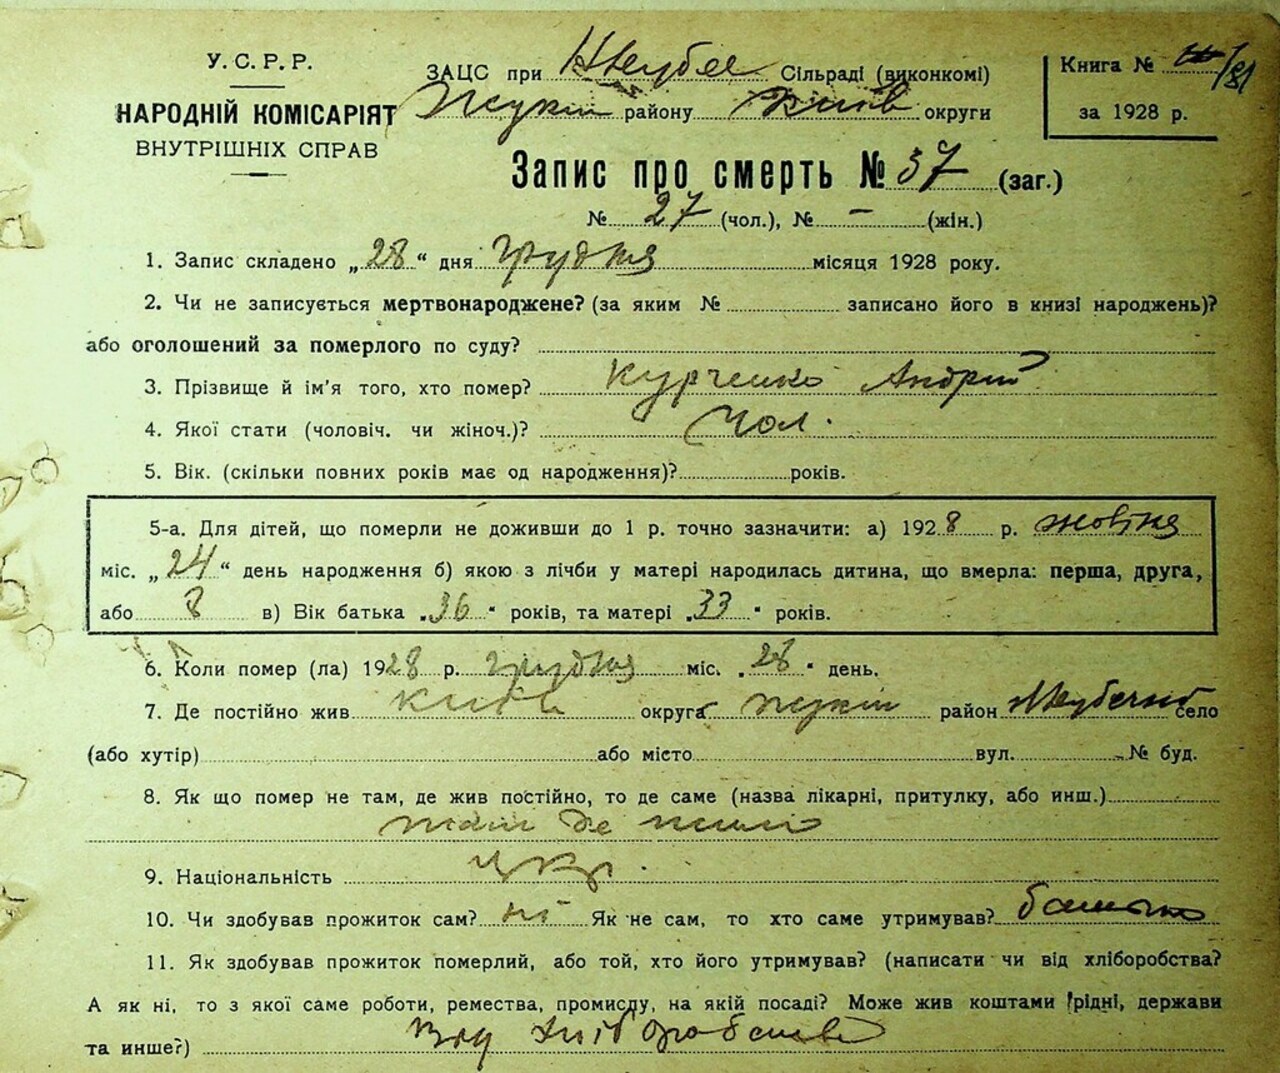 У. С. Р. Р.
НАРОДНІЙ КОМІСАРІЯТ
ВНУТРІШНІХ СПРАВ
ЗАЦС при Сільраді (виконкомі)
району Київ округи
Книга № /81
за 1928 р.
Запис про смерть № 37 (заг.)
№ 27 (чол.), № – (жін.)
1. Запис складено „28“ дня грудня місяця 1928 року.
2. Чи не записується мертвонароджене? (за яким № записано його в книзі народжень)?
або оголошений за померлого по суду?
3. Прізвище й ім'я того, хто помер? Курченко Андрій
4. Якої стати (чоловіч. чи жіноч.)? Чол.
5. Вік. (скільки повних років має од народження)? років.
5-а. Для дітей, що померли не доживши до 1 р. точно зазначити: а) 1928 р. жовтня
міс. „24“ день народження б) якою з лічби у матері народилась дитина, що вмерла: перша, друга,
або 8 в) Вік батька „36“ років, та матері „33“ років.
6. Коли помер (ла) 1928 р. грудня міс. „28“ день.
7. Де постійно жив Київ округа район село
(або хутір) або місто вул. № буд.
8. Як що помер не там, де жив постійно, то де саме (назва лікарні, притулку, або инш.)
там де жило
9. Національність укр.
10. Чи здобував прожиток сам? ні Як не сам, то хто саме утримував? батько
11. Як здобував прожиток померлий, або той, хто його утримував? (написати чи від хліборобства?
А як ні, то з якої саме роботи, ремества, промислу, на якій посаді? Може жив коштами рідні, держави
та инше?) Від хліборобства